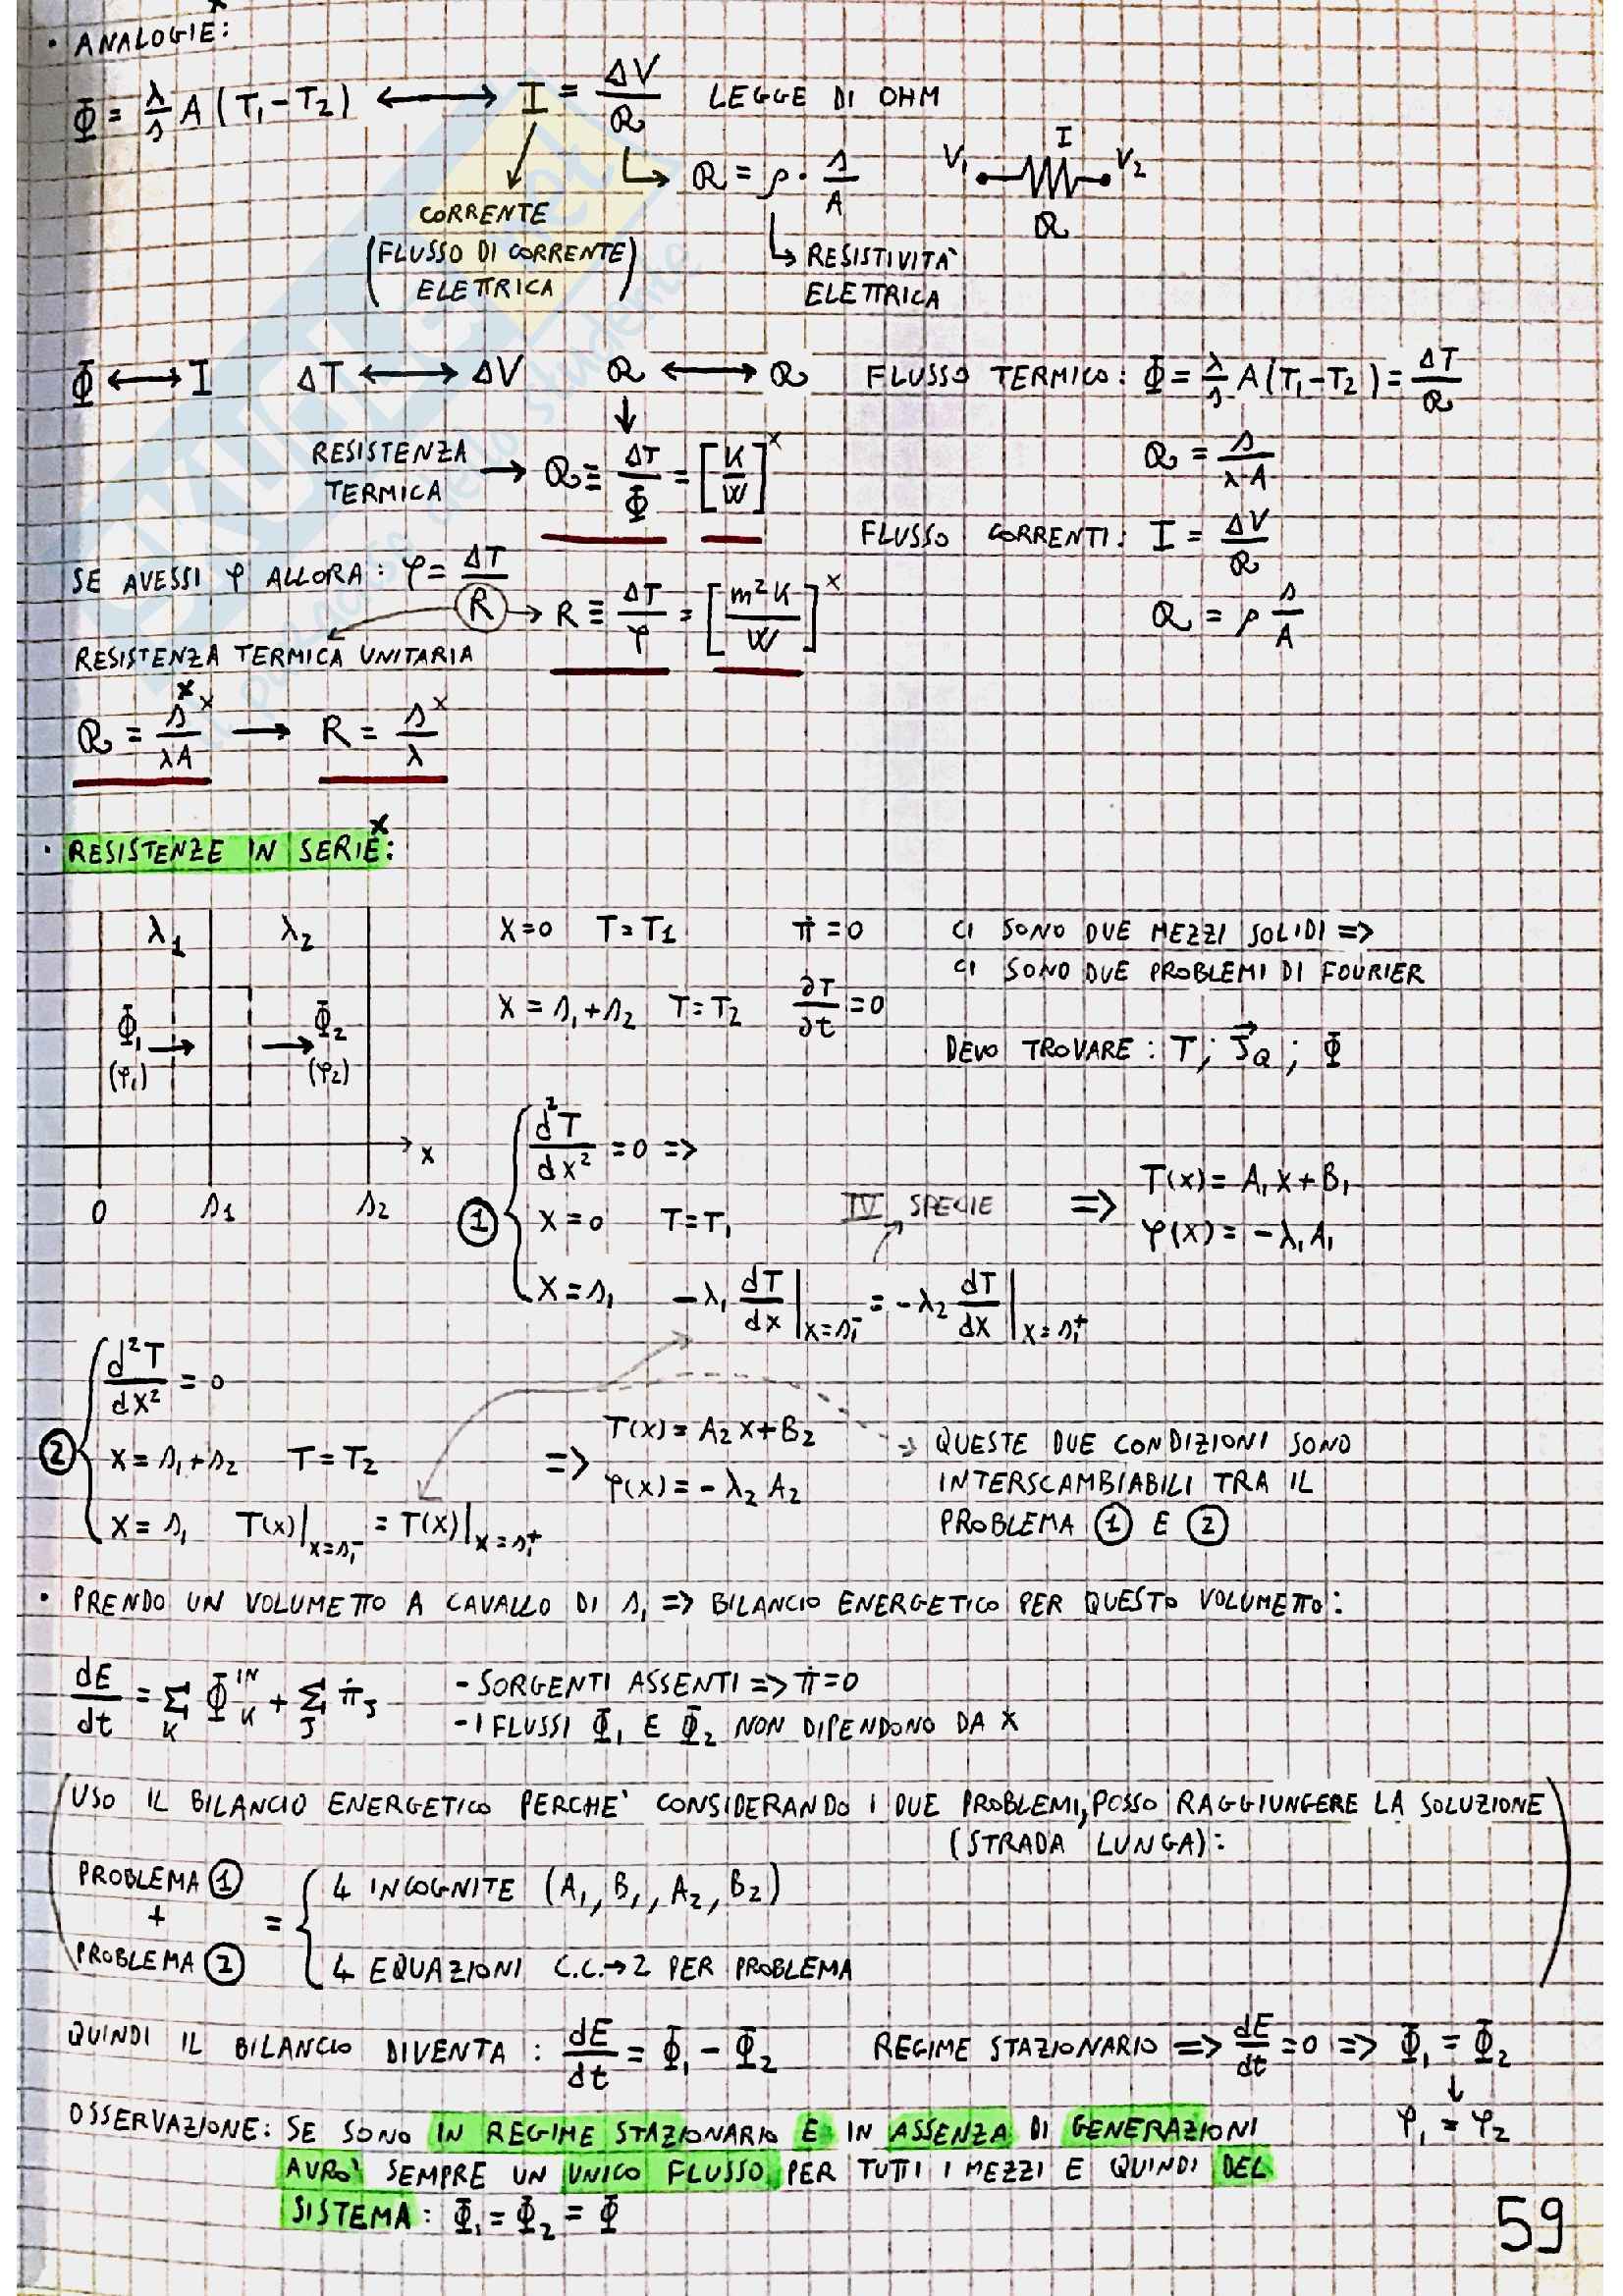 • ANALOGIE:
Φ = λ/s A (T₁-T₂) ⟷ I = ΔV/R LEGGE DI OHM
R = ρ · s/A
V₁ I V₂
R
CORRENTE
(FLUSSO DI CORRENTE
ELETTRICA)
RESISTIVITA'
ELETTRICA
Φ ⟷ I ΔT ⟷ ΔV R ⟷ R FLUSSO TERMICO: Φ = λ/s A (T₁-T₂) = ΔT/R
RESISTENZA
TERMICA → R ≡ ΔT/Φ = [K/W]ˣ
R = s/(λ·A)
FLUSSO CORRENTI: I = ΔV/R
SE AVESSI φ ALLORA: φ = ΔT/R → R ≡ ΔT/φ = [m²K/W]ˣ
R = ρ s/A
RESISTENZA TERMICA UNITARIA
R = s/(λA) ˣ → R = s/λ ˣ
• RESISTENZE IN SERIEˣ:
λ₁ λ₂
Φ₁ → → Φ₂
(φ₁) (φ₂)
0 s₁ s₂ x
x=0 T=T₁ π̇=0
x = s₁+s₂ T=T₂ ∂T/∂t=0
CI SONO DUE MEZZI SOLIDI =>
CI SONO DUE PROBLEMI DI FOURIER
DEVO TROVARE: T; J⃗Q; Φ
① { d²T/dx² = 0 =>
x=0 T=T₁
x=s₁ -λ₁ dT/dx|x=s₁⁻ = -λ₂ dT/dx|x=s₁⁺
IV SPECIE
=> T(x) = A₁x+B₁
φ(x) = -λ₁A₁
② { d²T/dx² = 0
x = s₁+s₂ T=T₂
x = s₁ T(x)|x=s₁⁻ = T(x)|x=s₁⁺
=> T(x) = A₂x+B₂
φ(x) = -λ₂A₂
=> QUESTE DUE CONDIZIONI SONO
INTERSCAMBIABILI TRA IL
PROBLEMA ① E ②
• PRENDO UN VOLUMETTO A CAVALLO DI s₁ => BILANCIO ENERGETICO PER QUESTO VOLUMETTO:
dE/dt = Σ_K Φ_K^IN + Σ_J π̇_J
- SORGENTI ASSENTI => π̇=0
- I FLUSSI Φ₁ E Φ₂ NON DIPENDONO DA X
(USO IL BILANCIO ENERGETICO PERCHE' CONSIDERANDO I DUE PROBLEMI, POSSO RAGGIUNGERE LA SOLUZIONE
(STRADA LUNGA):
PROBLEMA ①
+
PROBLEMA ②
= { 4 INCOGNITE (A₁, B₁, A₂, B₂)
4 EQUAZIONI C.C.→2 PER PROBLEMA)
QUINDI IL BILANCIO DIVENTA: dE/dt = Φ₁ - Φ₂ REGIME STAZIONARIO => dE/dt = 0 => Φ₁ = Φ₂
↓
φ₁ = φ₂
OSSERVAZIONE: SE SONO IN REGIME STAZIONARIO E IN ASSENZA DI GENERAZIONI
AVRO' SEMPRE UN UNICO FLUSSO PER TUTTI I MEZZI E QUINDI DEL
SISTEMA: Φ₁ = Φ₂ = Φ
59